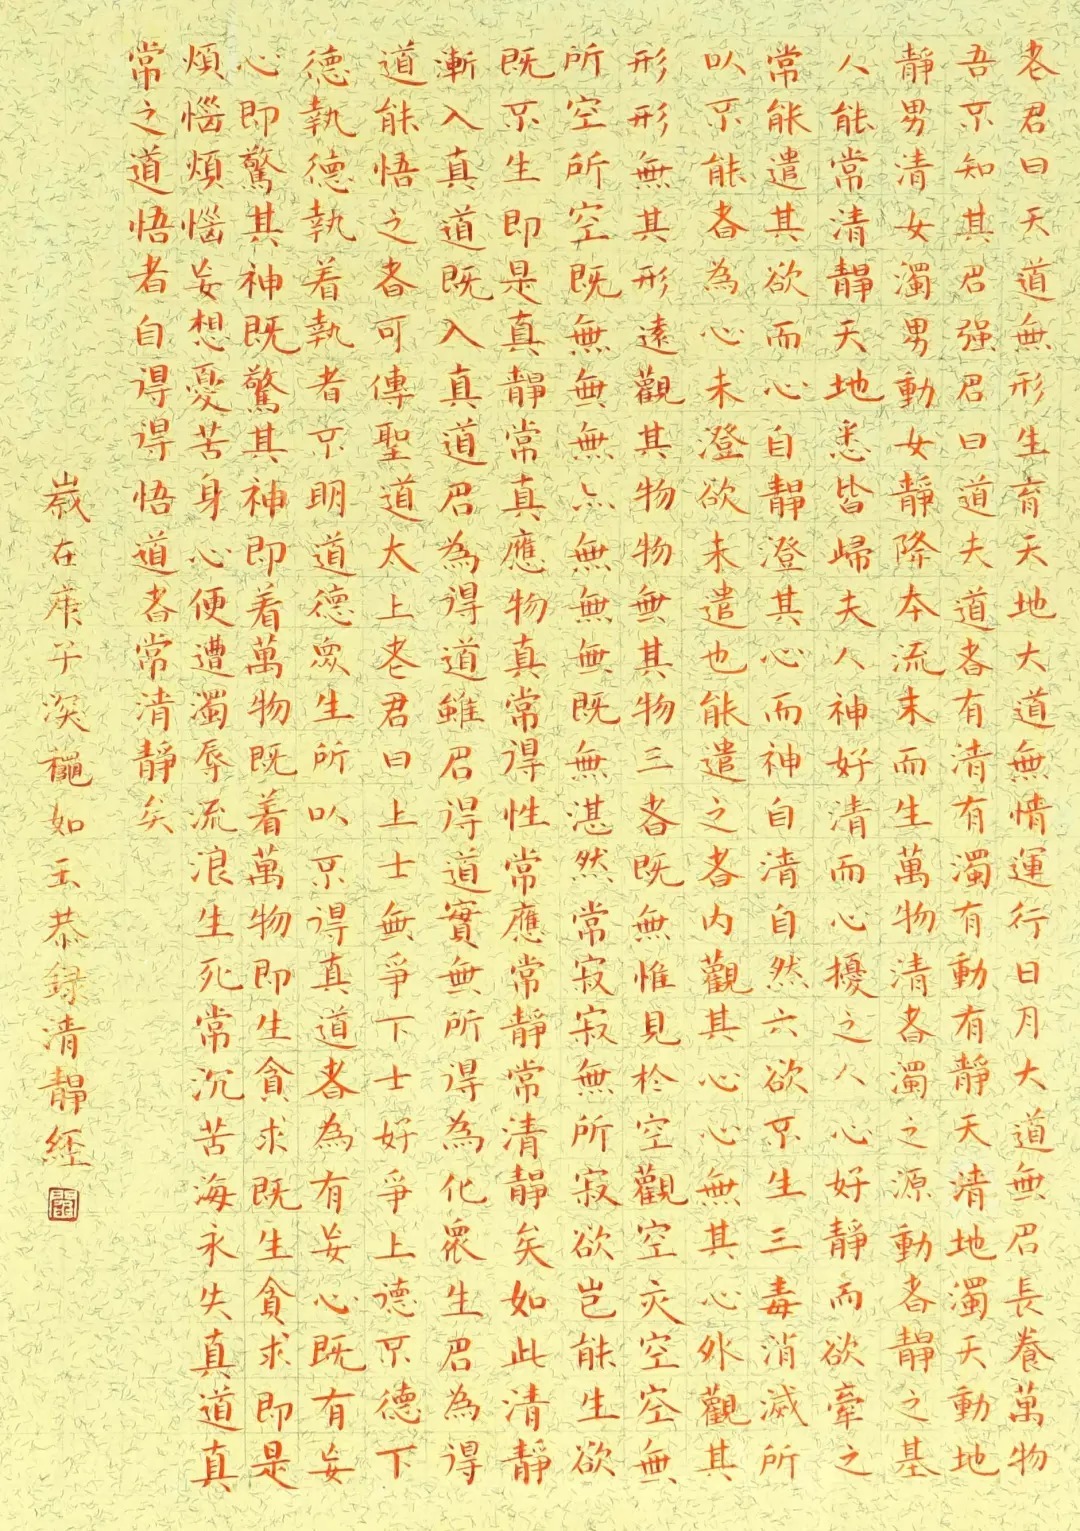 老君曰天道無形生育天地大道無情運行日月大道無名長養萬物
吾不知其名强名曰道夫道者有清有濁有動有靜天清地濁天動地
靜男清女濁男動女靜降本流末而生萬物清者濁之源動者靜之基
人能常清靜天地悉皆歸夫人神好清而心擾之人心好靜而欲牽之
常能遣其欲而心自靜澄其心而神自清自然六欲不生三毒消滅所
以不能者為心未澄欲未遣也能遣之者内觀其心心無其心外觀其
形形無其形遠觀其物物無其物三者既無惟見於空觀空亦空空無
所空所空既無無無亦無無無既無湛然常寂寂無所寂欲豈能生欲
既不生即是真靜常真應物真常得性常應常靜常清靜矣如此清靜
漸入真道既入真道名為得道雖名得道實無所得為化眾生名為得
道能悟之者可傳聖道太上老君曰上士無爭下士好爭上德不德下
德執德執着執者不明道德眾生所以不得真道者為有妄心既有妄
心即驚其神既驚其神即着萬物既着萬物即生貪求既生貪求即是
煩惱煩惱妄想憂苦身心便遭濁辱流浪生死常沉苦海永失真道真
常之道悟者自得得悟道者常清靜矣
歲在庚子深龝如玉恭録清靜經